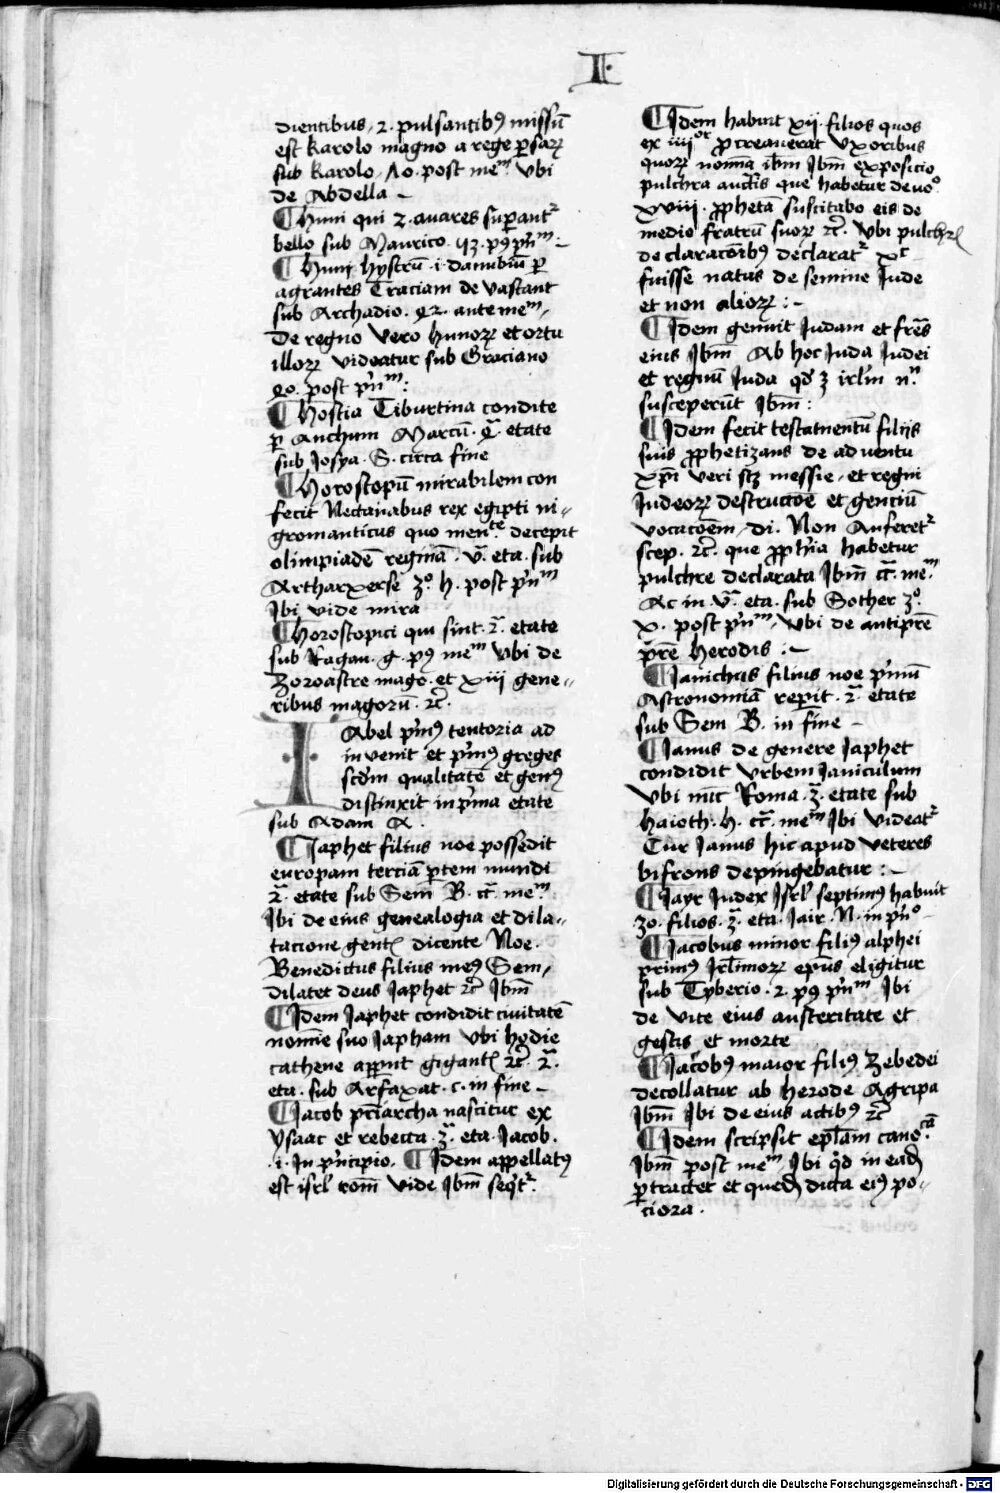 I
dientibus, 2. pulsantibꝫ missū
est karolo magno a rege ꝑsaꝝ
sub karolo. Λo. post meᵐ. vbi
de Abdella –
¶ Huni qui 2. auares suꝑant᷑
bello sub Maurico. ꝓ pᷤmᵐ :–
¶ Hunij hystrū .i. danubiū ꝑ
agrantes Traciam de vastant
sub Archadio. 92. ante meᵐ,
De regno vero hunoꝝ et ortu
illoꝝ videatur sub Graciano
90. post pn̄ᵐ:
¶ Hostia Tiburtina condite
ꝑ Anchum Marcū. 4ᵃ. etate
sub Iosya. S. circa fine
¶ Horoscopū mirabilem con
fecit Nectanabus rex egipti ni-
gromanticus quo menᵗᵉ decepit
olimpiadē reginā. vᵃ. eta. sub
Artharxerse 3⁰. h. post pn̄ᵐ
Ibi vide mira
¶ Horoscopici qui sint. 2ᵃ. etate
sub Ragau. g. pꝰ meᵐ vbi de
Zoroastre mago. et xiij gene-
ribus magorū. ⁊c̄.
IAbel pͥmꝰ tentoria ad
in venit et pͥmꝰ greges
scd̄m qualitatē et genꝰ
distinxit in pͥma etate
sub Adam A :
¶ Iaphet filius noe possedit
europam terciā ꝑtem mundi
2ᵃ. etate sub Sem B. cͣ. meᵐ
Ibi de eius genealogia et dila-
tacione gentꝭ dicente Noe.
Benedictus filius meꝰ Sem,
dilatet deus Iaphet ⁊c̄ Ibm̄
¶ Idem Iaphet condidit ciuitatē
nomīe suo Iapham vbi hodie
cathene apparuit gigantꝭ ⁊c̄. 2ᵃ.
eta. sub Arfaxat. c. in fine –
¶ Iacob pr̄iarcha nascitur ex
ysaac et rebecca. 3ᵃ. eta. Iacob.
.i. In pͥncipio. ¶ Idem appellatꝰ
est isrl̄ rom̄ vide Ibm̄ seqt᷑.
¶ Idem habuit xij. filios quos
ex iiijᵒʳ procreauerat vxoribus
quoꝝ nomīa ibm̄ Ibm̄ exposicio
pulchra auctis que habetur deuo⁰.
xviij. ꝓphetā suscitabo eis de
medio fratrū suoꝝ ⁊c̄. vbi pulchrꝭ
declaracōibꝫ declarat᷑ xᶜ–
fuisse natus de semine Iude
et non alioꝝ :–
¶ Idem genuit Iudam et fr̄es
eius Ibm̄ Ab hoc Iuda Iudei
et regnū Iuda qd̄ 3 irl̄m nⁿ.
susceperūt Ibm̄ :
¶ Idem fecit testamentū filijs
suis ꝓphetizans de aduentu
xp̄i veri scꝫ messie, et regni
Iudeoꝝ destructōe et genciū
vocacōem, di. Non Auferet᷑
scep. ⁊c̄. que ꝓphia habetur
pulchre declarata Ibm̄ cͣ. meᵐ.
Ac in. vᵃ. eta. sub Sother 3⁰.
x. post pn̄ᵐ, vbi de antipr̄e
pr̄e herodis :–
¶ Ianichus filius noe pͥmū
Astronomiā reperit. 2ᵃ etate
sub Sem B. in fine –
¶ Ianus de genere Iaphet
condidit vrbem Ianiculum
vbi nūc Roma. 3ᵃ. etate sub
haioth. h. cͣ. meᵐ Ibi videat᷑
Cur Ianus hic apud veteres
bifrons depingebatur :–
¶ Iayr Iudex Isrl̄ septimꝰ habuit
30. filios. 3ᵃ. eta. Iair. N. in pn̄⁰–
¶ Iacobus minor filiꝰ alphei
primꝰ Irl̄imoꝝ ep̄us eligitur
sub Tyberio. 2. pꝰ pn̄ᵐ Ibi
de vite eius austeritate et
gestis et morte
¶ Iacobꝰ maior filiꝰ Zebedei
decollatur ab herode Agripa
Ibm̄ Ibi de eius actibꝫ ⁊c̄
¶ Idem scripsit epl̄am canoᶜᵃ.
Ibm̄ post meᵐ Ibi qd̄ in ead̄
ꝑtractet et qued̄ dicta eiꝰ po-
ciora.
Digitalisierung gefördert durch die Deutsche Forschungsgemeinschaft - DFG